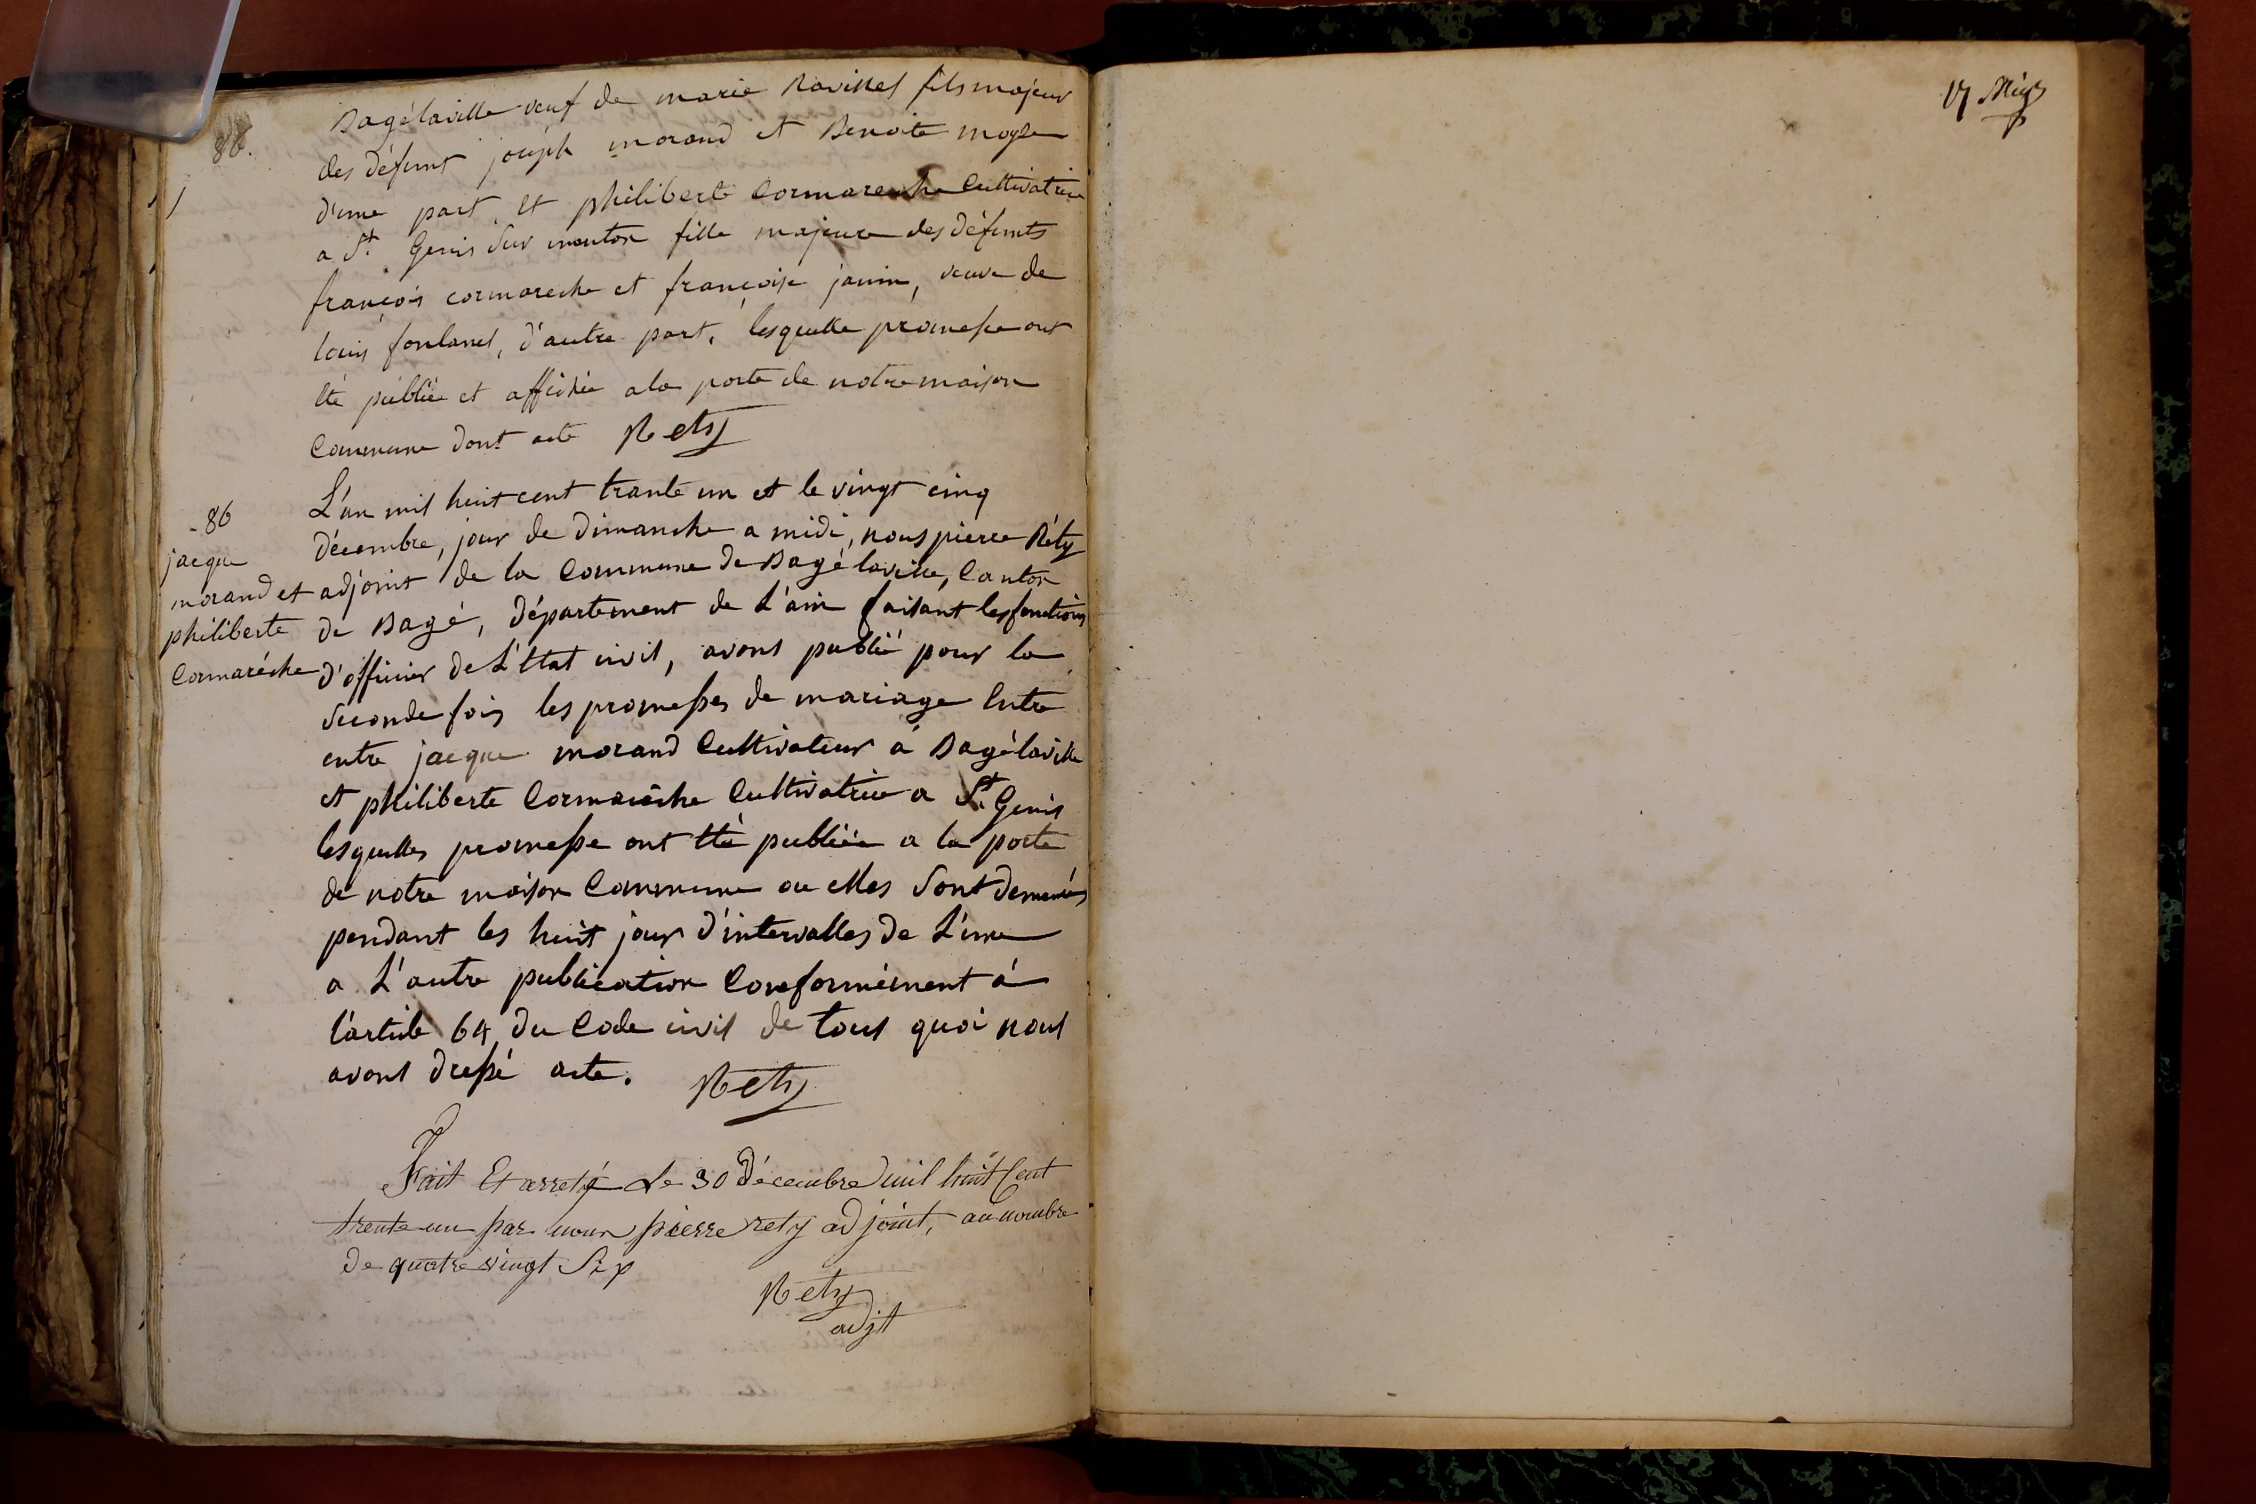 88.
Bagélaville veuf de marie Ravikel fils majeur
des défunt joseph morand et Benoite moyse
d'une part, et philiberte Cormareche Cultivatrice
a St. Genis Sur menton fille majeure des défunts
françois cormareche et françoise janin, veuve de
louis fontanel, d'autre part, lesquelle promesse ont
été publiée et affichée a la porte de notre maison
Commune dont acte Rety
- 86
jacque
morand et
philiberte
Cormaréche
L'an mil huit cent trante un et le vingt cinq
décembre, jour de dimanche a midi, nous pierre Réty
adjoint de la Commune de Bagé laville, Canton
de Bagé, département de L'ain faisant les fonctions
d'officier de L'état civil, avons publié pour la
Seconde fois les promesses de mariage Entre
entre jacque morand Cultivateur á Bagélaville
et philiberte Cormaréche Cultivatrice a St. Genis
lesquelles promesse ont été publiée a la porte
de notre maison Commune ou elles Sont demeurées
pendant les huit jour d'intervalles de L'une
a L'autre publication Conformément á
l'article 64 du Code civil de tout quoi nous
avons dressé acte. Rety
Fait Et arreté Le 30 Décembre mil huit Cent
trente un par nous pierre rety adjoint, au nombre
de quatre vingt Six
Rety
adjt
17